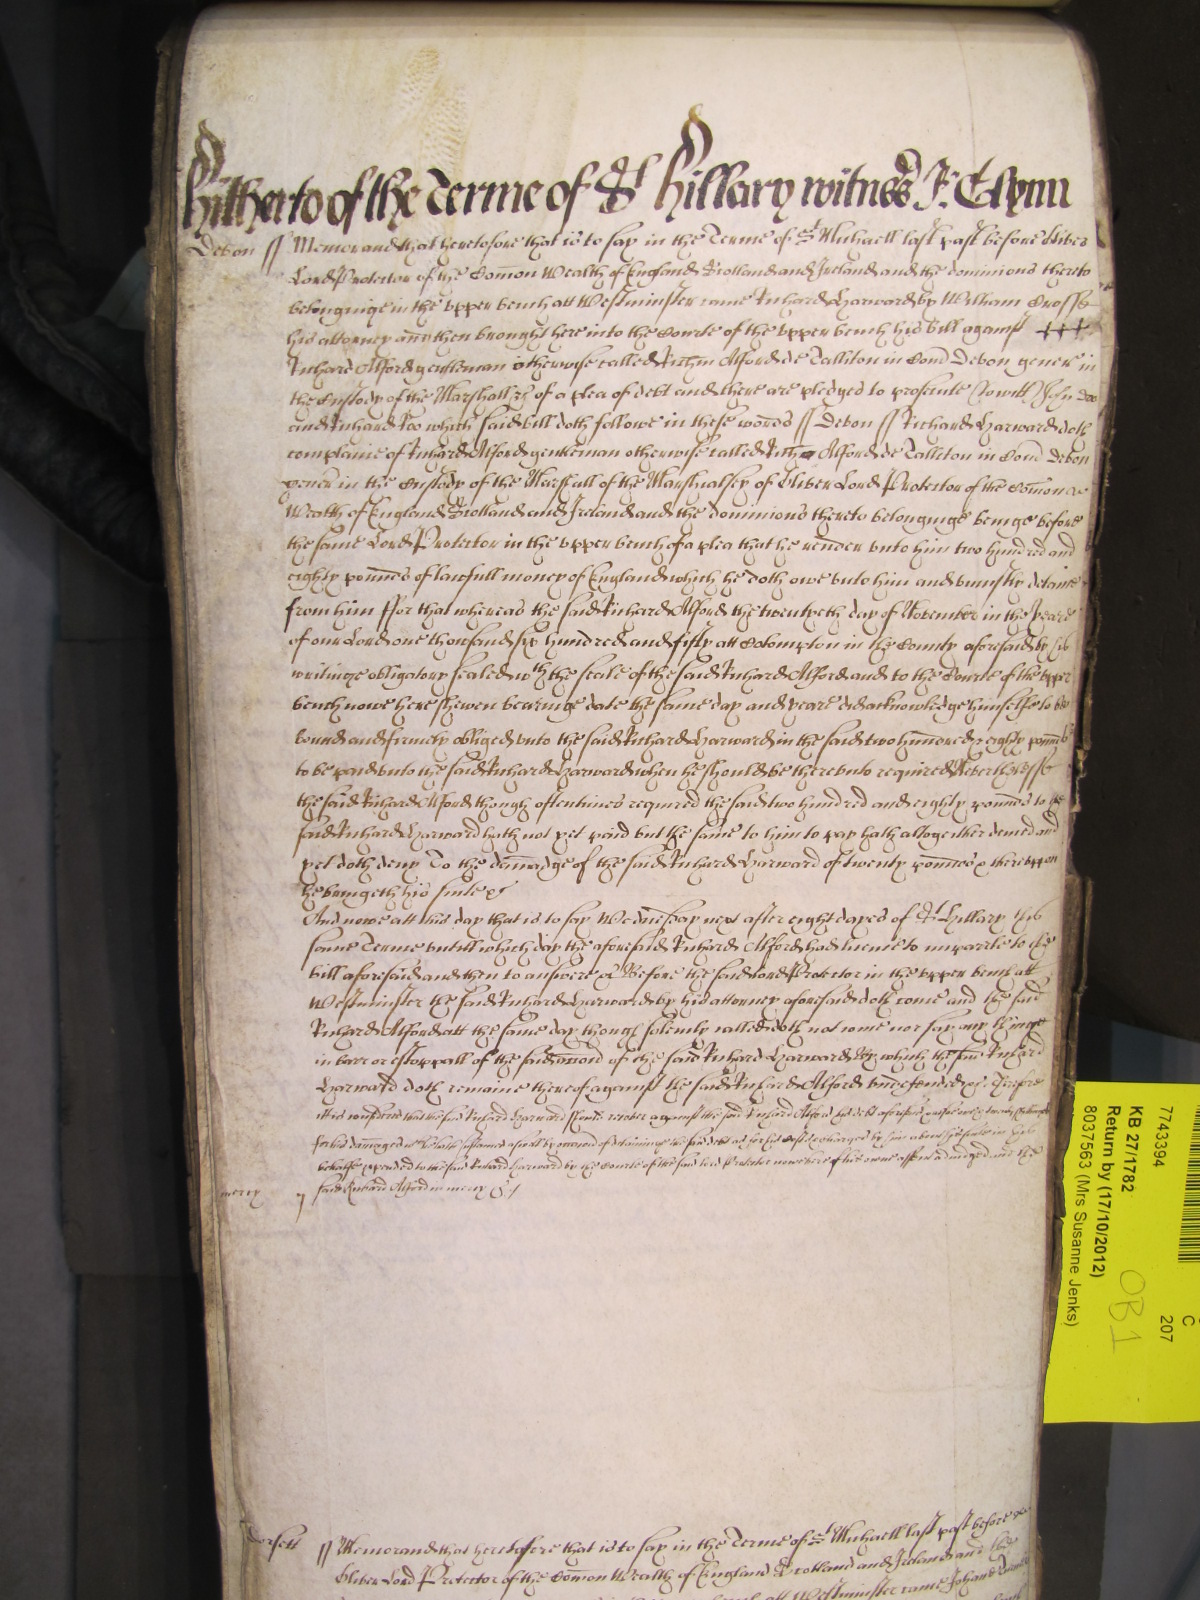 Hitherto of the Terme of St Hillary witnes J: Glynn
Devon ss Memorand that heretofore that is to say in the Terme of St Michaell last past before Oliver
Lord Protector of the Comon Wealth of England Scotland and Ireland and the dominions thereto
belonginge in the upper bench att Westminster came Richard Harward by William Crosse
his attorney and then brought here into the Courte of the upper bench his bill against
Richard Alford gentleman otherwise called Richm Alford de Talliton in Com Devon gener in
the Custody of the Marshall &c of a plea of debt and there are pledges to prosecute to witt John Doo
and Richard Roo which said bill doth followe in these words ss Devon ss Richard Harward doth
complaine of Richard Alford gentleman otherwise called Rich Alford de Talliton in Com Devon
gener in the Custody of the Marshall of the Marshalsey of Oliver Lord Protector of the Comon
Wealth of England Scotland and Ireland and the dominions thereto belonginge beinge before
the same Lord Protector in the upper bench of a plea that he render unto him two hundred and
eighty pounds of lawfull money of England which he doth owe unto him and uniustly detaine
from him ffor that whereas the said Richard Alford the twentyeth day of November in the yeare
of our Lord one thousand six hundred and fifty att Columpton in the County aforesaid by his
writinge obligatory sealed wth the seale of the said Richard Alford and to the Courte of the upper
bench nowe here shewen bearinge date the same day and yeare did acknowledge himselfe to be
bound and firmely obliged unto the said Richard Harward in the said two hundred & eighty pounds
to be paid unto the said Richard Harward when he should be thereunto required Neverthelesse
the said Richard Alford though oftentimes required the said two hundred and eighty pounds to the
said Richard Harward hath not yet paid but the same to him to pay hath altogether denied and
yet doth deny To the damadge of the said Richard Harward of twenty pounds & thereuppon
he bringeth his suite &c
And nowe att this day that is to say Wednesday next after eight dayes of St Hillary this
same Terme untill which day the aforesaid Richard Alford had licence to imparle to the
bill aforesaid and then to answere &c Before the said Lord Protector in the upper bench att
Westminster the said Richard Harward by his attorney aforesaid doth come and the said
Richard Alford att the same day though solemly called doth not come nor say any thinge
in barr or estoppall of the said accon of the said Richard Harward By which the said Richard
Harward doth remaine thereof against the said Richard Alford undefended &c Therefore
it is considered that the said Richard Harward should recover against the said Richard Alford his debt aforesaid and alsoe
for his damages wch he hath susteined aswell by occacon of detaininge the said debt as for his Costs & charges by him about his suite in this
behalfe expended to the said Richard Harward by the Courte of the said lord Protector nowe here of his owne assent adiudged And the
mercy said Richard Alford in mercy &c
Dorsett ss Memorand that heretofore that is to say in the Terme of St Michaell last past before
Oliver Lord Protector of the Comon Wealth of England Scotland and Ireland and the
att Westminster came
7743394
KB 27/1782
Return by (17/10/2012)
8037563 (Mrs Susanne Jenks)
C
207
OB1